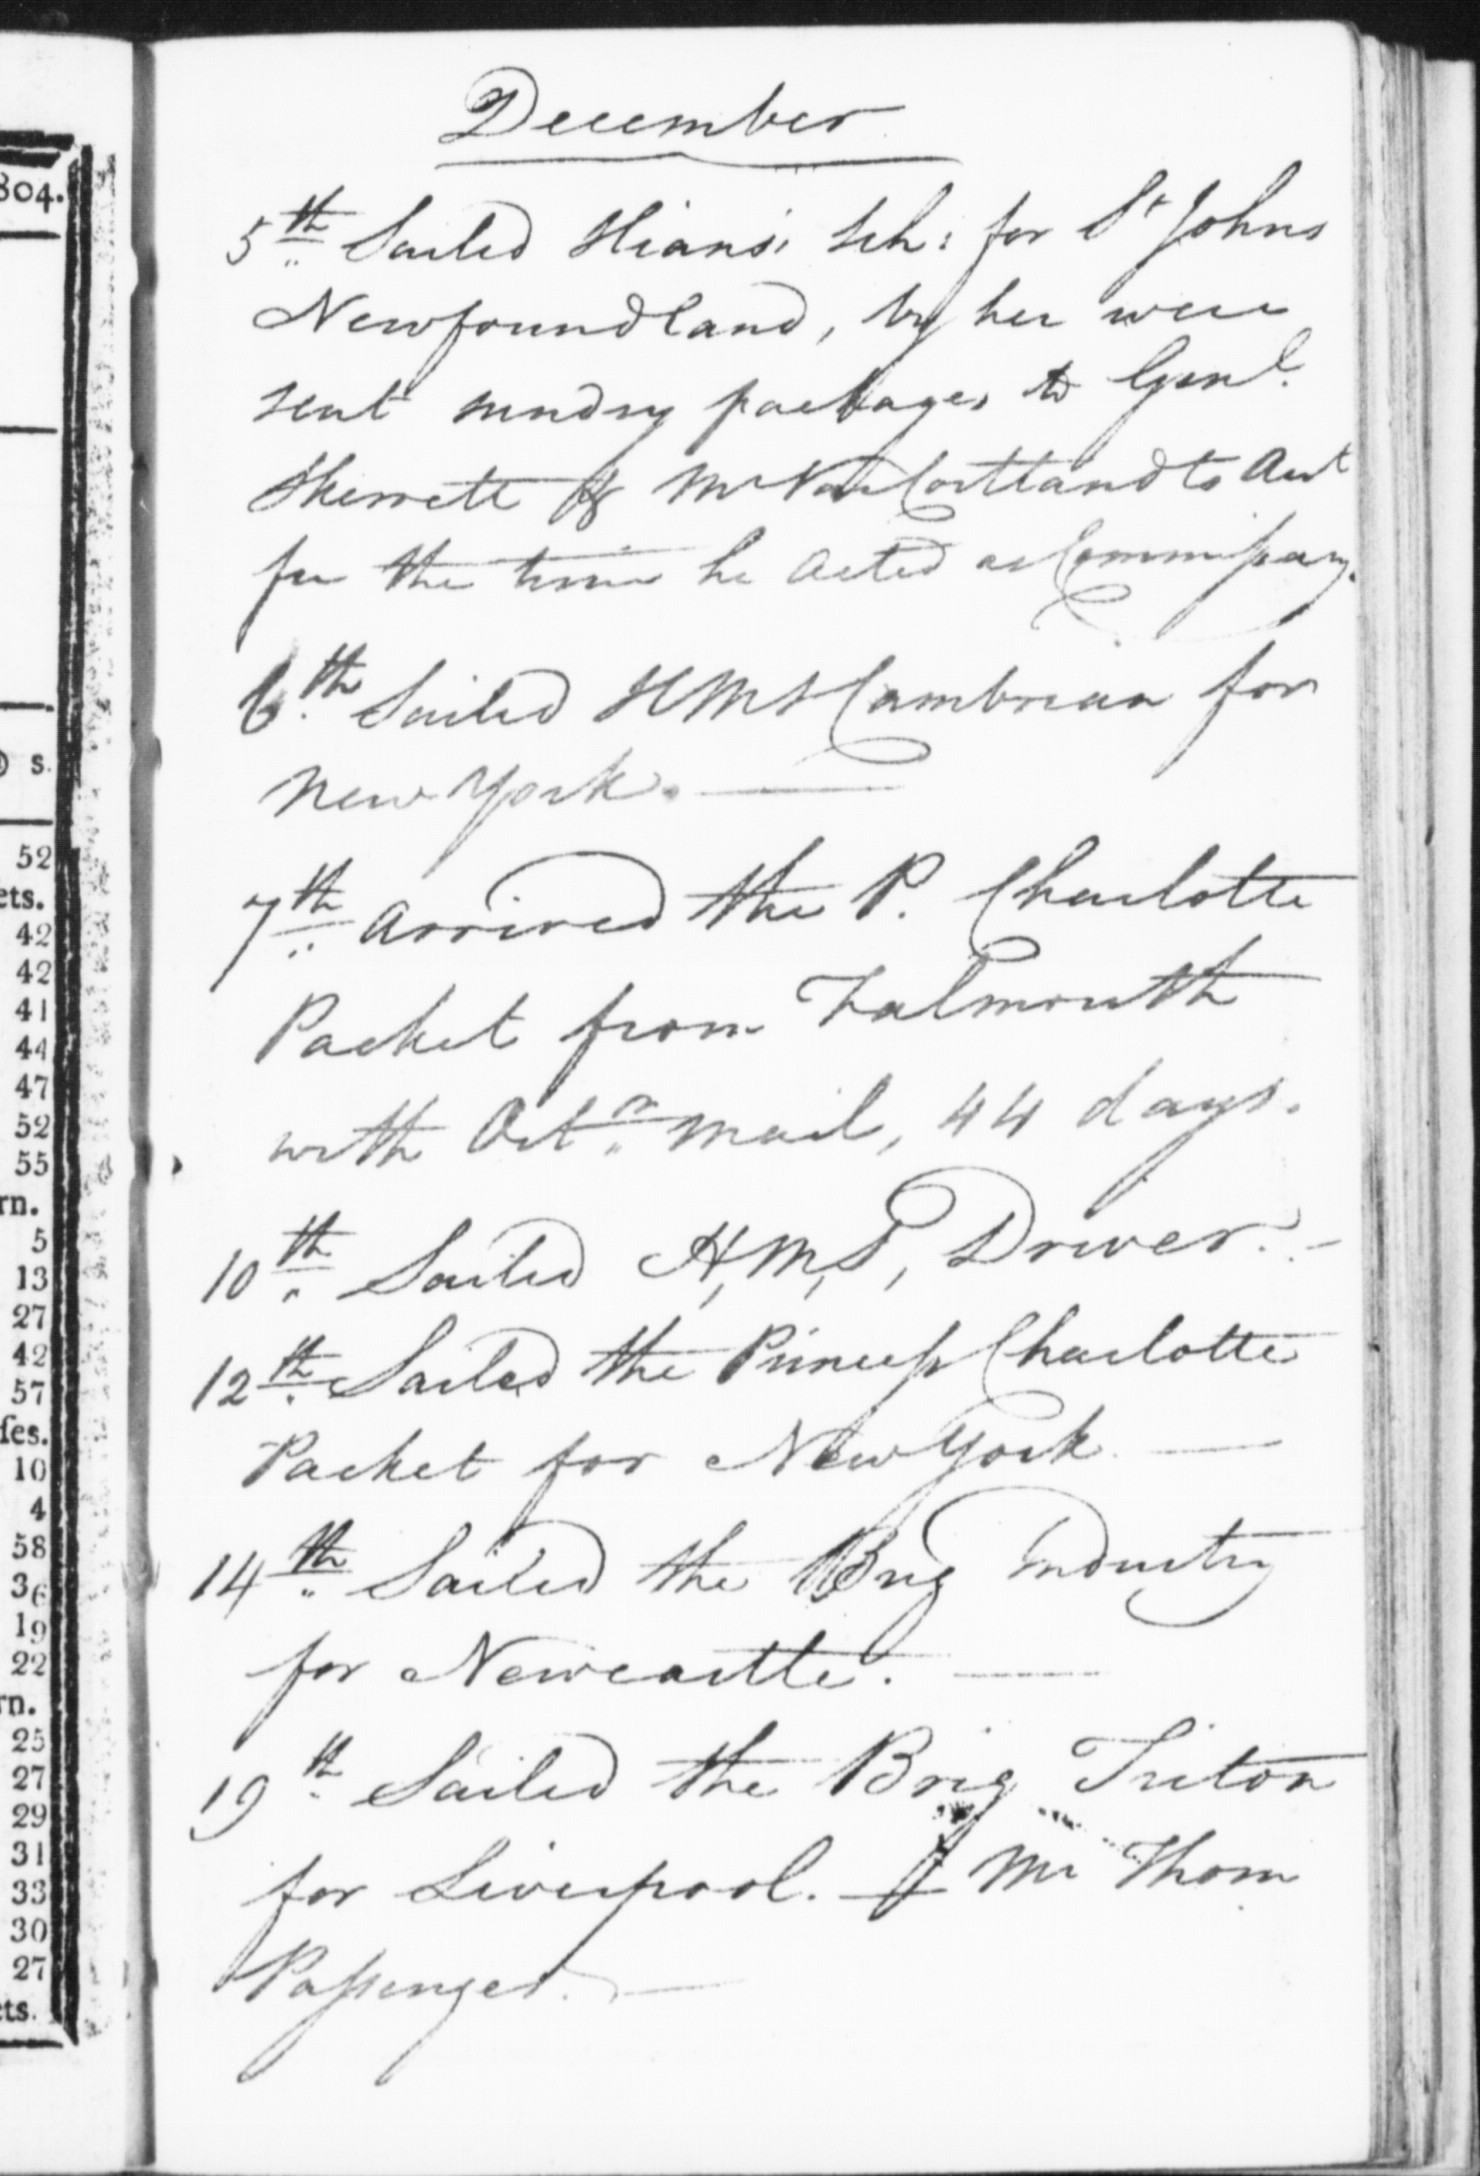 804.
s.
52
ets.
42
42
41
44
47
52
55
rn.
5
13
27
42
57
ſes.
10
4
58
36
19
22
rn.
25
27
29
31
33
30
27
cts.
December
5th Sailed Sch: for St Johns
Newfoundland, by her were
sent sundry packages to Genl.
Skerrett & Mr Van Cortlandts Act
for the time he acted as Commissary.
6th Sailed HMS Cambrian for
New York.
7th arrived the P. Charlotte
Packet from Falmouth
with Octr. mail, 44 days.
10th Sailed H,M,S, Driver.
12th Sailed the Princess Charlotte
Packet for New York
14th Sailed the Brig Industry
for Newcastle.
19th Sailed the Brig Triton
for Liverpool. Mr Thom
Passenger.